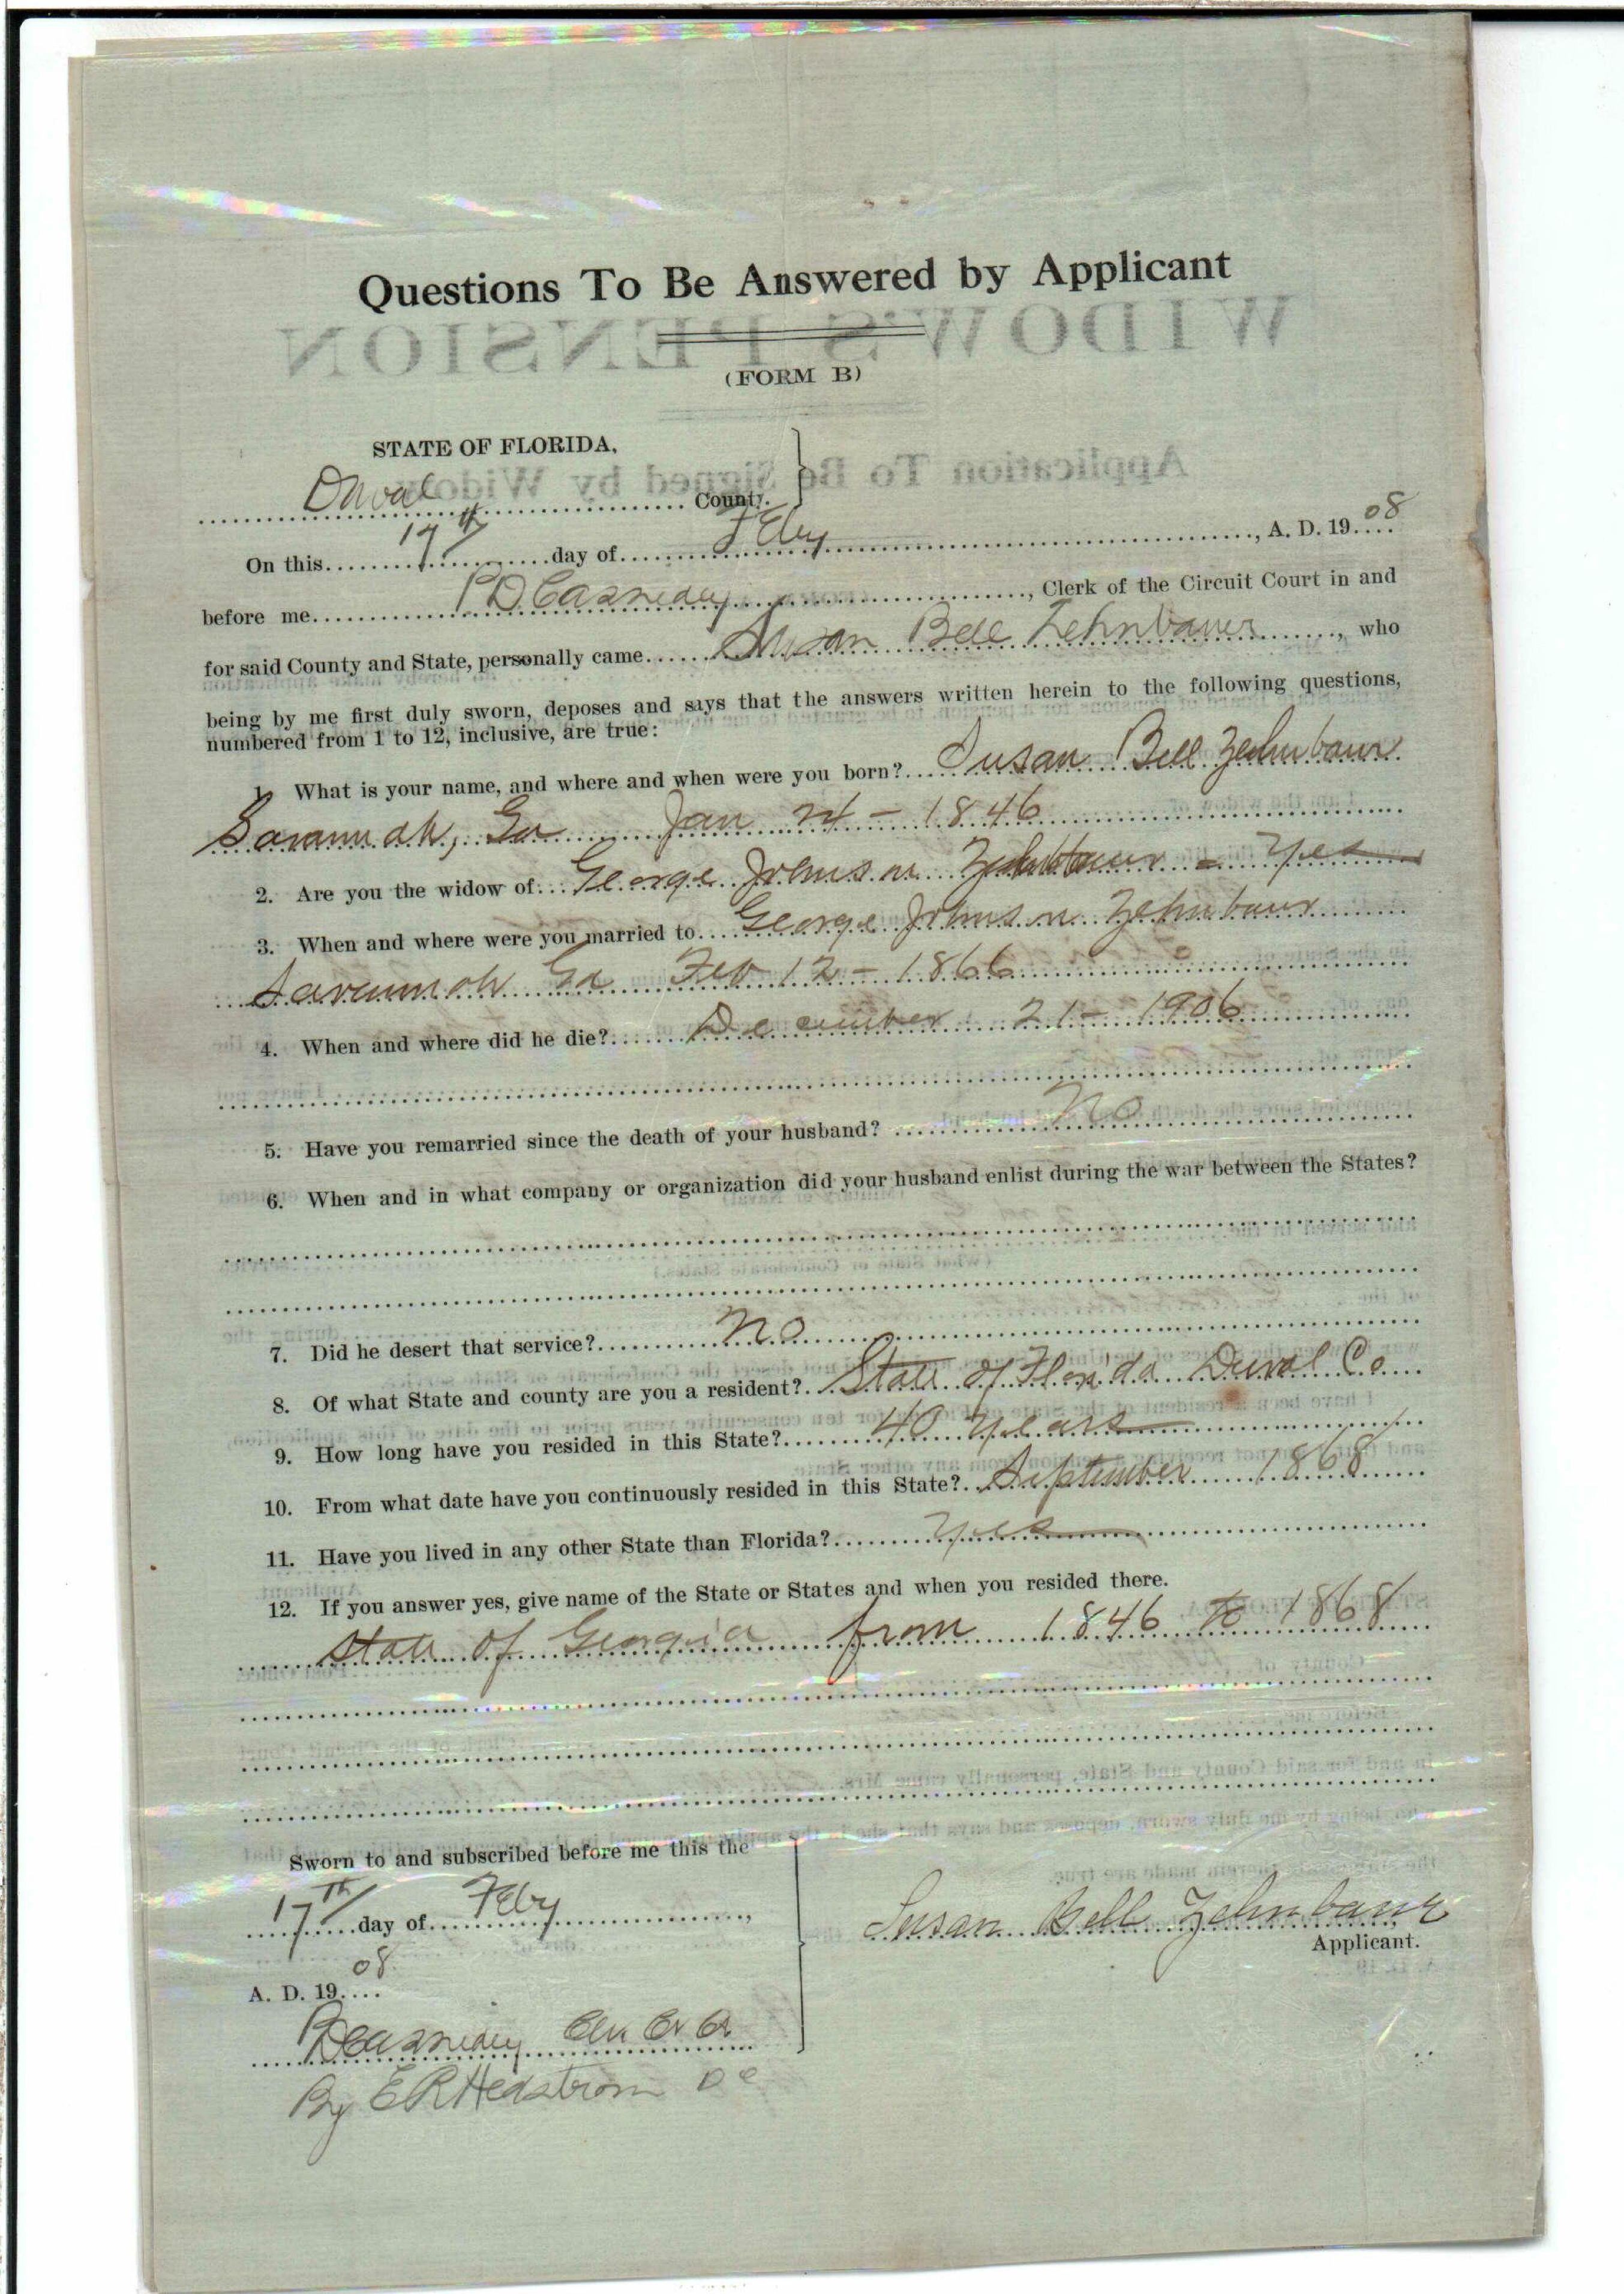 Questions To Be Answered by Applicant
(FORM B)
STATE OF FLORIDA,
Duval County.
On this 17th day of Feby, A. D. 1908
before me P D Cassidey, Clerk of the Circuit Court in and
for said County and State, personally came Susan Bell Zehnbauer, who
being by me first duly sworn, deposes and says that the answers written herein to the following questions,
numbered from 1 to 12, inclusive, are true:
1. What is your name, and where and when were you born? Susan Bell Zehnbaur
Savannah, Ga Jan 24 - 1846
2. Are you the widow of George Johnson Zehnbaur - Yes
3. When and where were you married to George Johnson Zehnbaur
Savannah Ga Feb 12 - 1866
4. When and where did he die? December 21 - 1906
5. Have you remarried since the death of your husband? No
6. When and in what company or organization did your husband enlist during the war between the States?
7. Did he desert that service? No
8. Of what State and county are you a resident? State of Florida Duval Co
9. How long have you resided in this State? 40 years
10. From what date have you continuously resided in this State? September 1868
11. Have you lived in any other State than Florida? Yes
12. If you answer yes, give name of the State or States and when you resided there.
State of Georgia from 1846 to 1868
Sworn to and subscribed before me this the
17th day of Feby,
A. D. 1908
Susan Bell Zehnbaur
Applicant.
P D Cassidey Clk
By E R Hedstrom D C